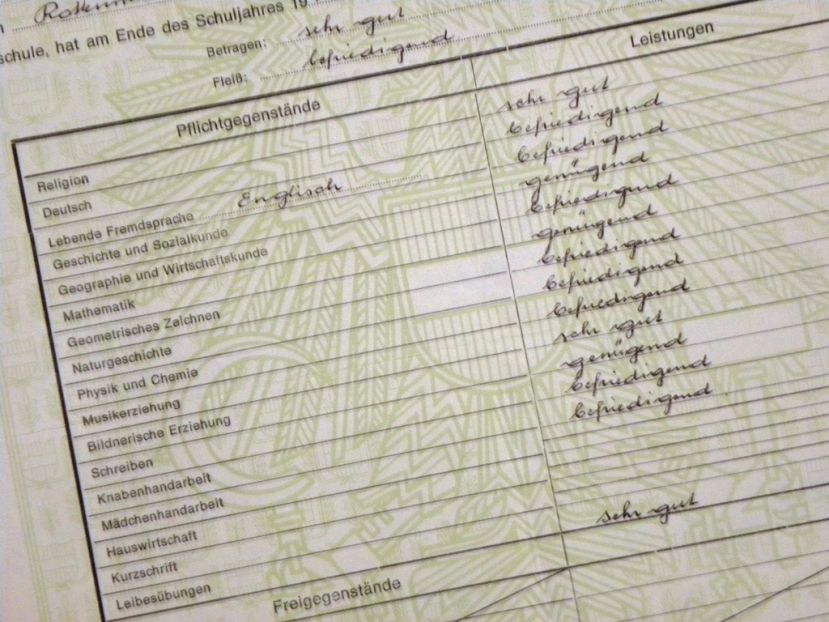 schule, hat am Ende des Schuljahres 19
Betragen: sehr gut
Fleiß: befriedigend
Pflichtgegenstände Leistungen
Religion sehr gut
Deutsch befriedigend
Lebende Fremdsprache Englisch befriedigend
Geschichte und Sozialkunde genügend
Geographie und Wirtschaftskunde befriedigend
Mathematik genügend
Geometrisches Zeichnen befriedigend
Naturgeschichte befriedigend
Physik und Chemie befriedigend
Musikerziehung sehr gut
Bildnerische Erziehung genügend
Schreiben befriedigend
Knabenhandarbeit befriedigend
Mädchenhandarbeit
Hauswirtschaft
Kurzschrift
Leibesübungen sehr gut
Freigegenstände